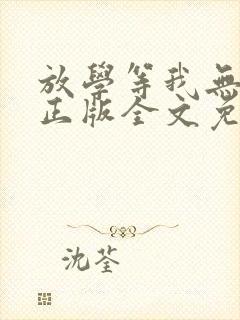 放學等我無
正版全文免
沈荃